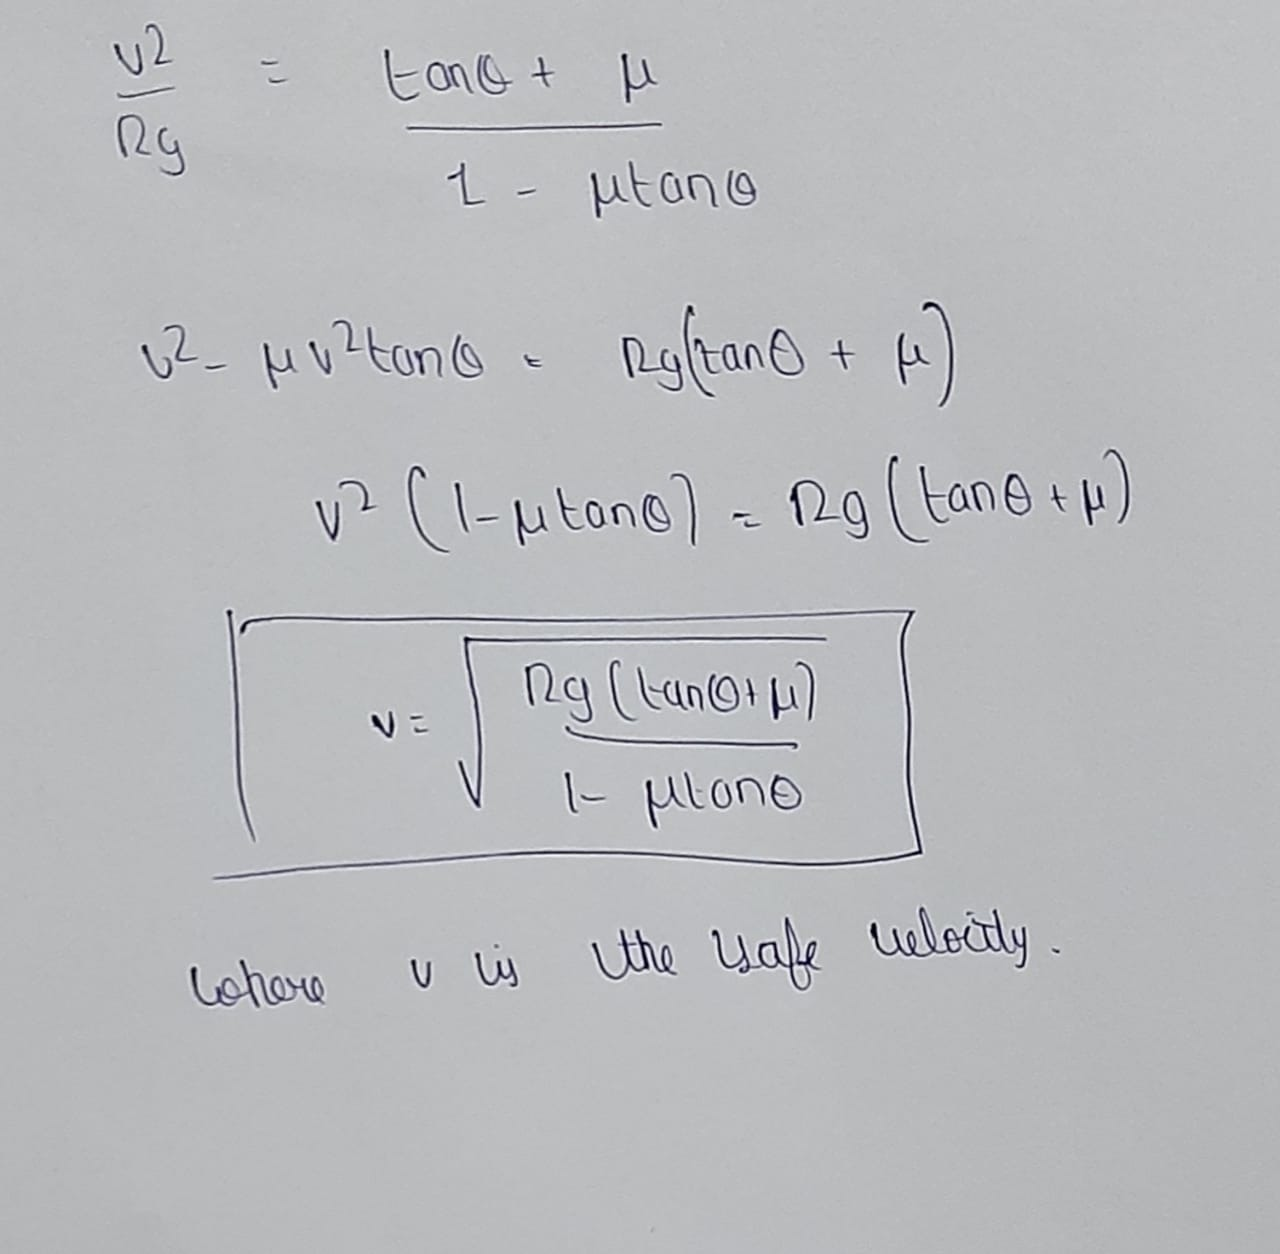 v² / Rg = tanθ + μ / 1 - μtanθ
v² - μv²tanθ = Rg(tanθ + μ)
v² (1 - μtanθ) = Rg (tanθ + μ)
v = √ Rg (tanθ + μ) / 1 - μtanθ
where v is the safe velocity.